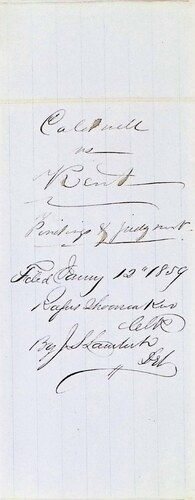 Caldwell
vs
Kent
Findings & judgment.
Filed Jany 12th 1859
Rufus Thomas
Clk
By J S Lambert